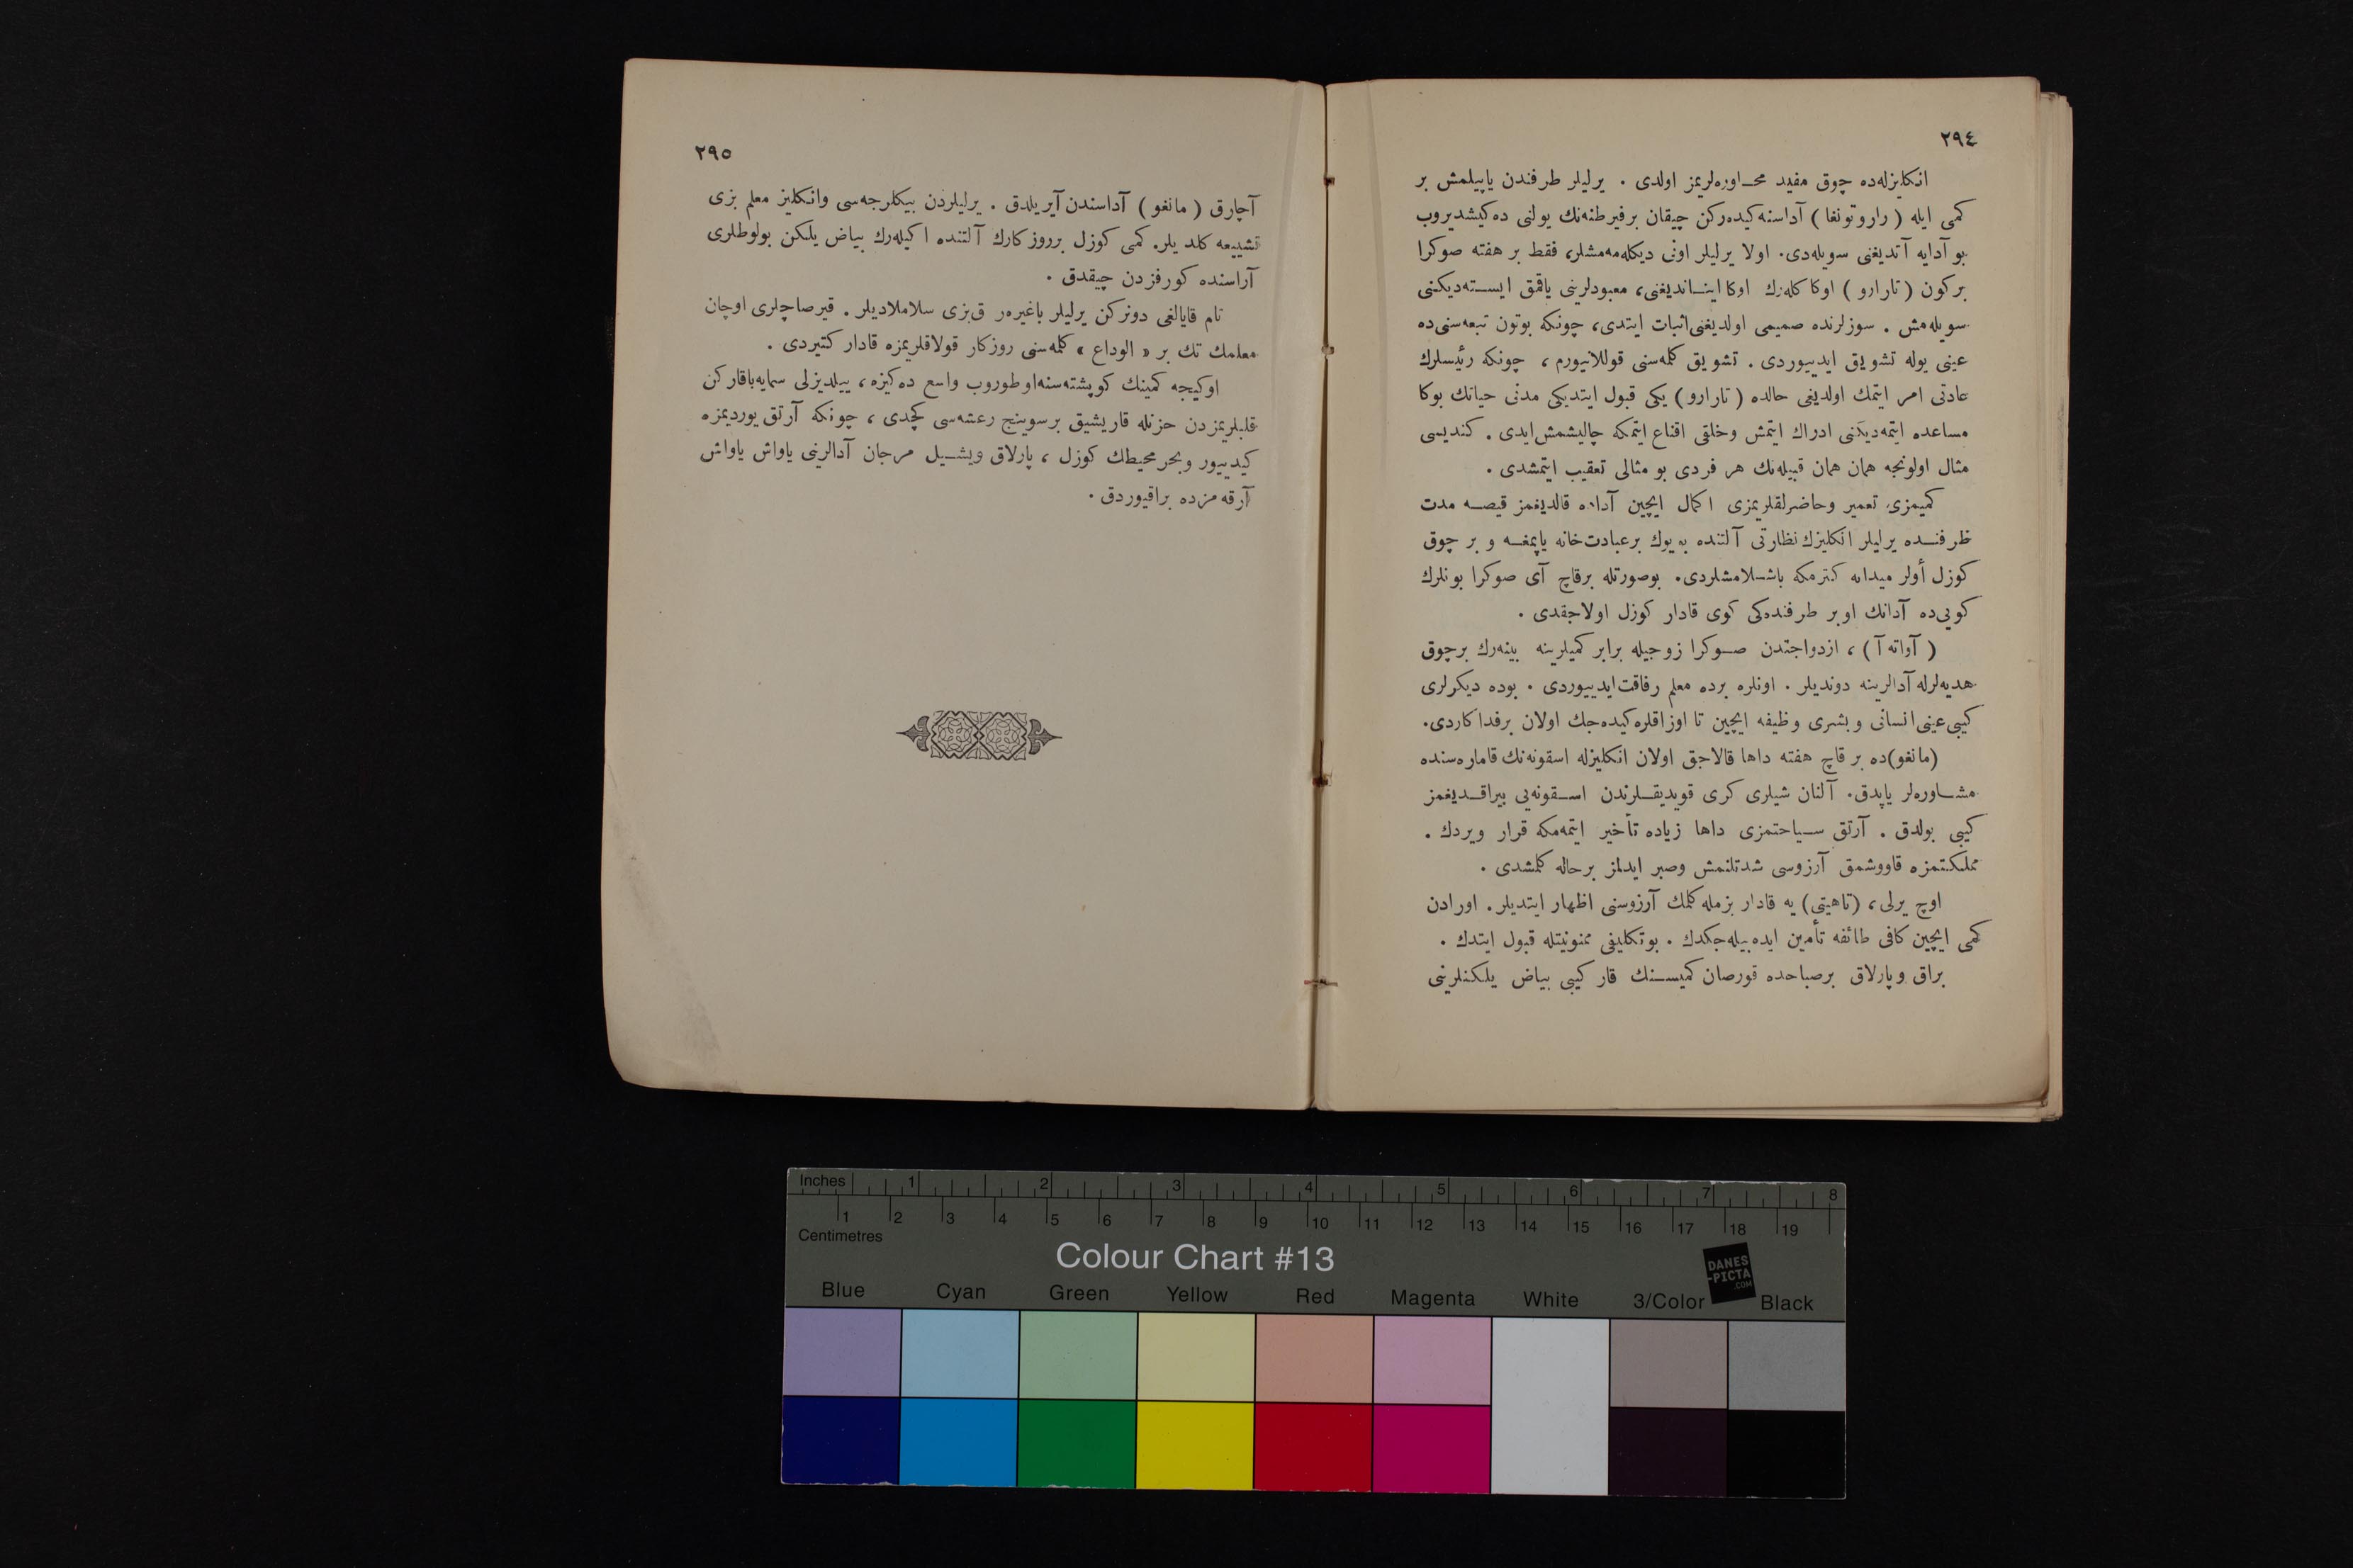 ٢٩٤
انكليزله‌ده چوق مفيد محـاوره‌لريمز اولدى . يرليلر طرفندن ياپيلمش بر
كمى ايله ( راروتونغا ) آداسنه كيده‌ركن چيقان برفيرطنه‌نك يولنى ده‌كيشديروب
بو آدايه آتديغنى سويله‌دى. اولا يرليلر اونى ديكله‌مه‌مشلر، فقط بر هفته صوكرا
بركون ( تارارو ) اوكا كله‌رك اوكا اينـانديغنى، معبودلرينى ياقمق ايسـته‌ديكنى
سويله‌مش . سوزلرنده صميمى اولديغنى اثبات ايتدى، چونكه بوتون تبعه‌سنى‌ده
عينى يوله تشويق ايدييوردى . تشويق كلمه‌سنى قوللانيورم ، چونكه رئيسلرك
عادتى امر ايتمك اولديغى حالده ( تارارو ) يكى قبول ايتديكى مدنى حياتك بوكا
مساعده ايتمه‌ديكنى ادراك ايتمش وخلقى اقناع ايتمكه چاليشمش‌ايدى . كنديسى
مثال اولونجه همان همان قبيله‌نك هر فردى بو مثالى تعقيب ايتمشدى .
كميمزى تعمير وحاضرلقلريمزى اكمال ايچين آداده قالديغمز قيصـه مدت
ظرفنـده يرليلر انكليزك نظارتى آلتنده به‌يوك برعبادت‌خانه ياپمغـه و بر چوق
كوزل أولر ميدانه كترمكه باشـلامشلردى. بوصورتله برقاچ آى صوكرا بونلرك
كويى‌ده آدانك اوبر طرفنده‌كى كوى قادار كوزل اولاجقدى .
( آواته‌آ ) ، ازدواجندن صـوكرا زوجيله برابر كميلرينه بينه‌رك برچوق
هديه‌لرله آدالرينه دونديلر . اونلره برده معلم رفاقت‌ايدييوردى . بوده ديكرلرى
كيبى عينى انسانى و بشرى وظيفه ايچين تا اوزاقلره كيده‌جك اولان برفداكاردى.
(مانغو)ده بر قاچ هفته داها قالاجق اولان انكليزله اسقونه‌نك قاماره‌سنده
مشـاوره‌لر ياپدق. آلنان شيلرى كرى قويديقـلرندن اسـقونه‌يى بيراقـديغمز
كيبى بولدق . آرتق سـياحتمزى داها زياده تأخير ايتمه‌مكه قرار ويردك .
مملكتمزه قاووشمق آرزوسى شدتلنمش وصبر ايدلمز برحاله كلمشدى .
اوچ يرلى، (تاهيتى) يه قادار بزمله كلمك آرزوسنى اظهار ايتديلر. اورادن
كمى ايچين كافى طائفه تأمين ايده‌بيله‌جكدك . بوتكليفى ممنونيتله قبول ايتدك .
براق وپارلاق برصباحده قورصان كميسـنك قار كيبى بياض يلكنلرينى
٢٩٥
آچارق ( مانغو ) آداسندن آيريلدق . يرليلردن بيكلرجه‌سى وانكليز معلم بزى
تشييعه كلديلر. كمى كوزل برروزكارك آلتنده اكيله‌رك بياض يلكن بولوطلرى
آراسنده كورفزدن چيقدق .
تام قايالغى دونركن يرليلر باغيره‌رق‌بزى سلاملاديلر . قيرصاچلرى اوچان
معلمك تك بر « الوداع » كلمه‌سنى روزكار قولاقلريمزه قادار كتيردى .
اوكيجه كمينك كوپشته‌سنه‌اوطوروب واسع ده‌كيزه، ييلديزلى سمايه‌باقاركن
قلبلريمزدن حزنله قاريشيق برسوينج رعشه‌سى كچدى ، چونكه آرتق يورديمزه
كيدييور وبحر محيطك كوزل ، پارلاق ويشـيل مرجان آدالرينى ياواش ياواش
آرقه‌مزده براقيوردق .
Inches 1 2 3 4 5 6 7 8
1 2 3 4 5 6 7 8 9 10 11 12 13 14 15 16 17 18 19
Centimetres
Colour Chart #13
DANES
-PICTA
.COM
Blue Cyan Green Yellow Red Magenta White 3/Color Black